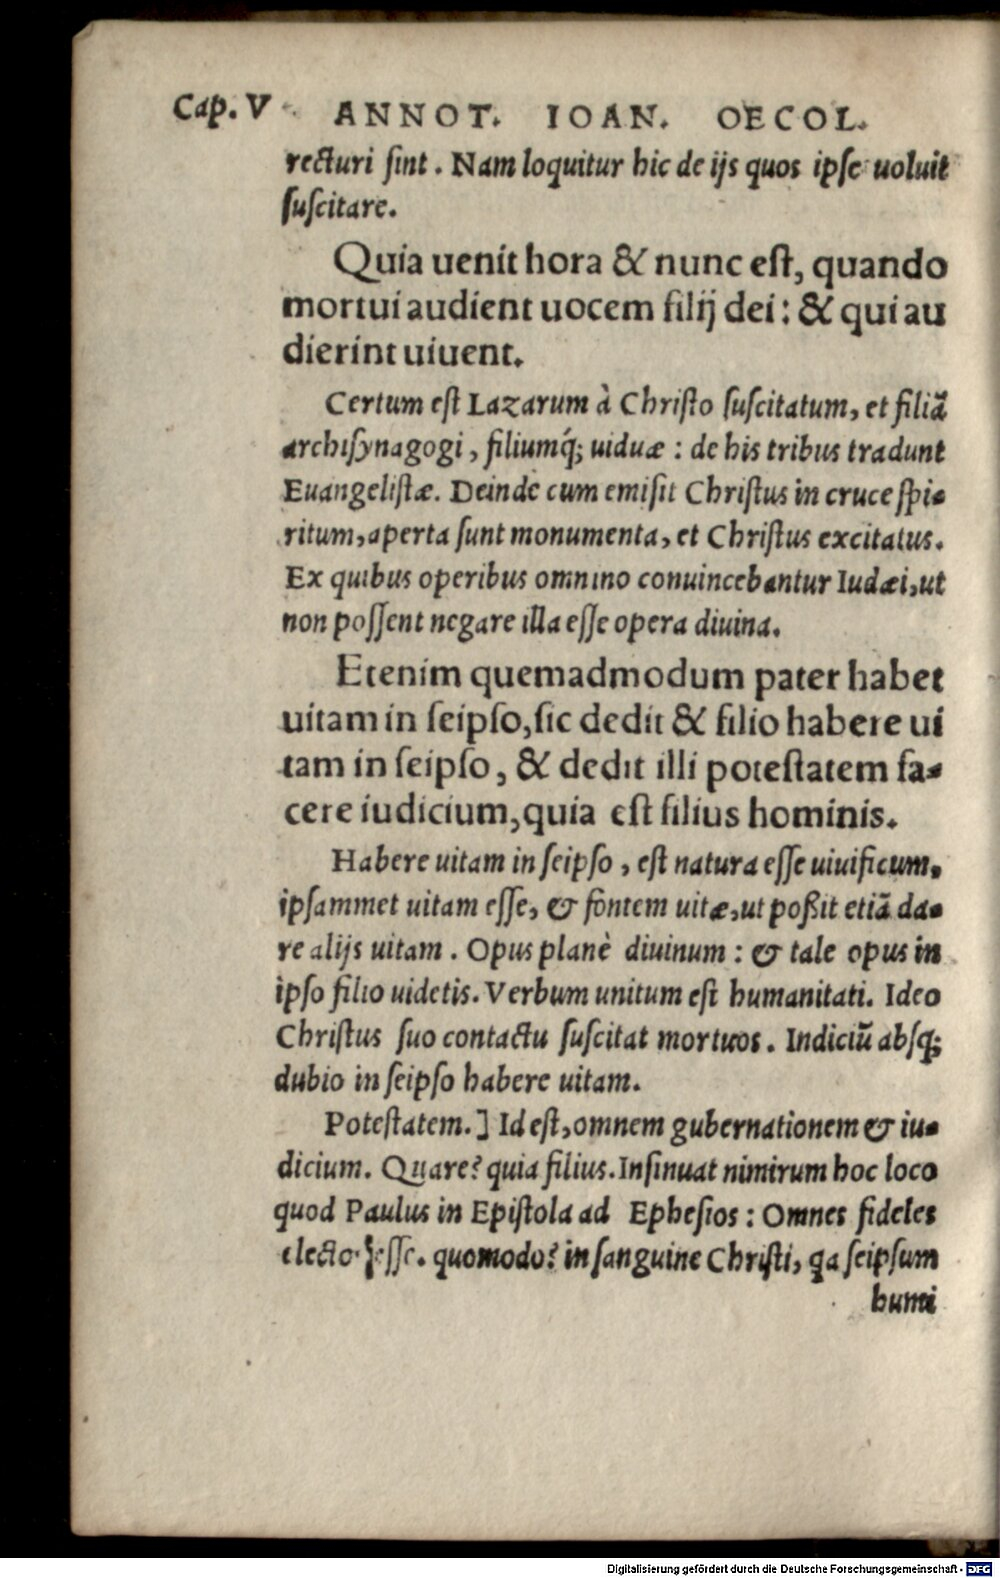 Cap. V ANNOT. IOAN. OECOL.
recturi ſint. Nam loquitur hic de ijs quos ipſe uoluit
ſuſcitare.
Quia uenit hora & nunc eſt, quando
mortui audient uocem filij dei: & qui au
dierint uiuent.
Certum eſt Lazarum à Chriſto ſuſcitatum, et filiā
archiſynagogi, filiumq́; uiduæ: de his tribus tradunt
Euangeliſtæ. Deinde cum emiſit Chriſtus in cruce ſpi-
ritum, aperta ſunt monumenta, et Chriſtus excitatus.
Ex quibus operibus omnino conuincebantur Iudæi, ut
non poſſent negare illa eſſe opera diuina.
Etenim quemadmodum pater habet
uitam in ſeipſo, ſic dedit & filio habere ui
tam in ſeipſo, & dedit illi poteſtatem fa-
cere iudicium, quia eſt filius hominis.
Habere uitam in ſeipſo, eſt natura eſſe uiuificum,
ipſammet uitam eſſe, & fontem uitæ, ut poßit etiā da-
re alijs uitam. Opus planè diuinum: & tale opus in
ipſo filio uidetis. Verbum unitum eſt humanitati. Ideo
Chriſtus ſuo contactu ſuſcitat mortuos. Indiciū abſq;
dubio in ſeipſo habere uitam.
Poteſtatem.] Id eſt, omnem gubernationem & iu-
dicium. Quare? quia filius. Inſinuat nimirum hoc loco
quod Paulus in Epiſtola ad Epheſios: Omnes fideles
eſſe. quomodo? in ſanguine Chriſti, qa ſeipſum
humi
Digitalisierung gefördert durch die Deutsche Forschungsgemeinschaft - DFG